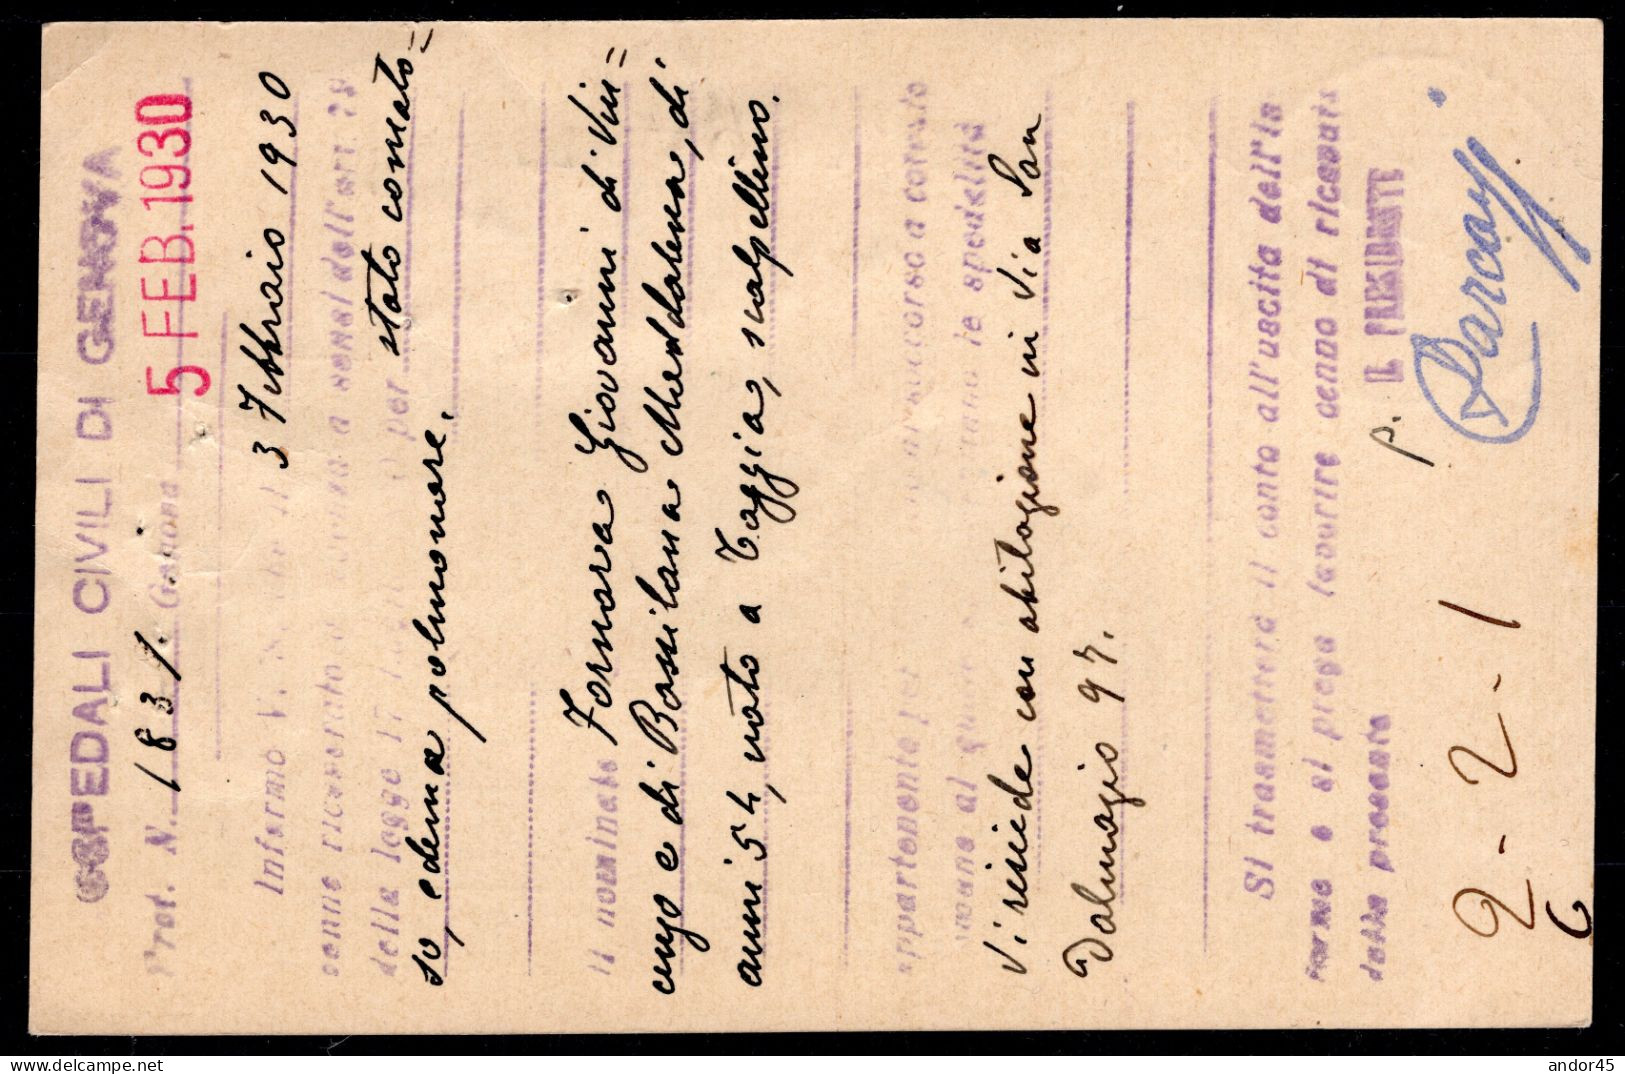 OSPEDALI CIVILI DI GENOVA
Prot. N. 1837. Genova 5 FEB. 1930
Informo V. S. che il 3 Febbraio 1930
venne ricoverato a sensi dell'art. 78
della legge 17 per stato comato=
so, edema polmonare.
Il nominato Fornara Giovanni di Vin=
cenzo e di Bassilana Maddalena, di
anni 54, nato a Taggia, scalpellino.
appartenente soccorso a cotesto
le spedalità
Vi risiede con abitazione in Via San
Dalmazio 97.
Si trasmetterà il conto all'uscita dell'in
fermo e si prega favorire cenno di ricevuta
della presente
p. IL PRESIDENTE
2-2-1
6
andor45